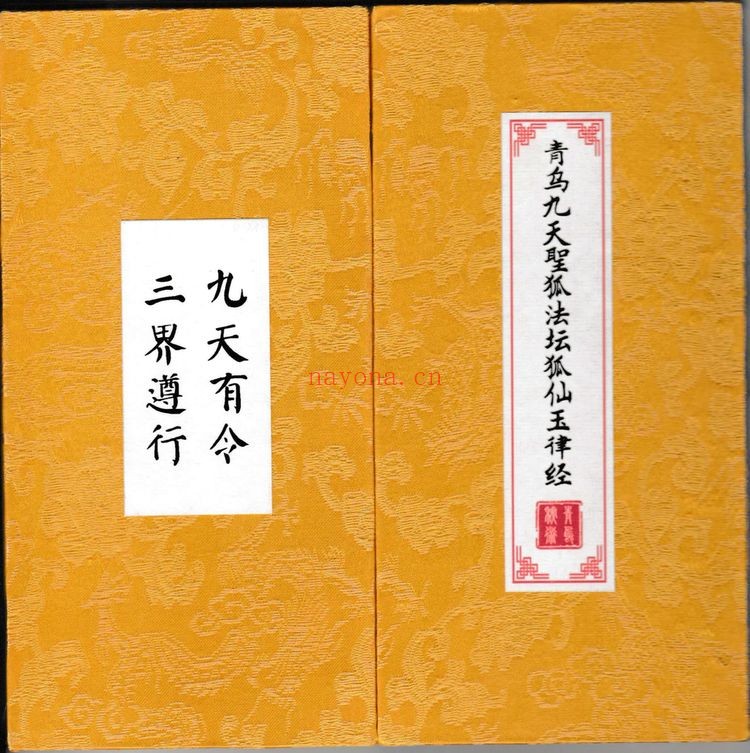 青乌九天聖狐法坛狐仙玉律经
九天有令
三界遵行
nayona.cn